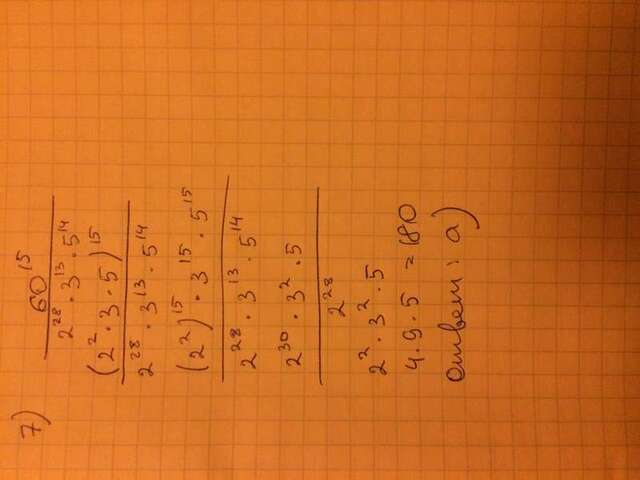 7)
60^15
2^28 · 3^13 · 5^14
(2^2 · 3 · 5)^15
2^28 · 3^13 · 5^14
(2^2)^15 · 3^15 · 5^15
2^28 · 3^13 · 5^14
2^30 · 3^2 · 5
2^28
2^2 · 3^2 · 5
4 · 9 · 5 = 180
ответ: а)